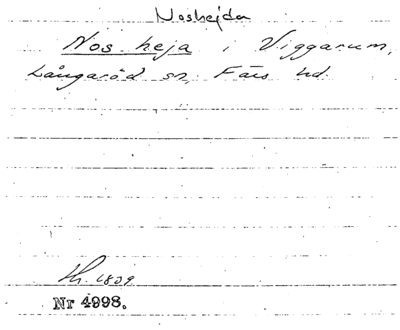 Noshejda
Nos heja i Viggarum,
Långaröd sn, Färs hd.
Lh. 1839
Nr 4998.